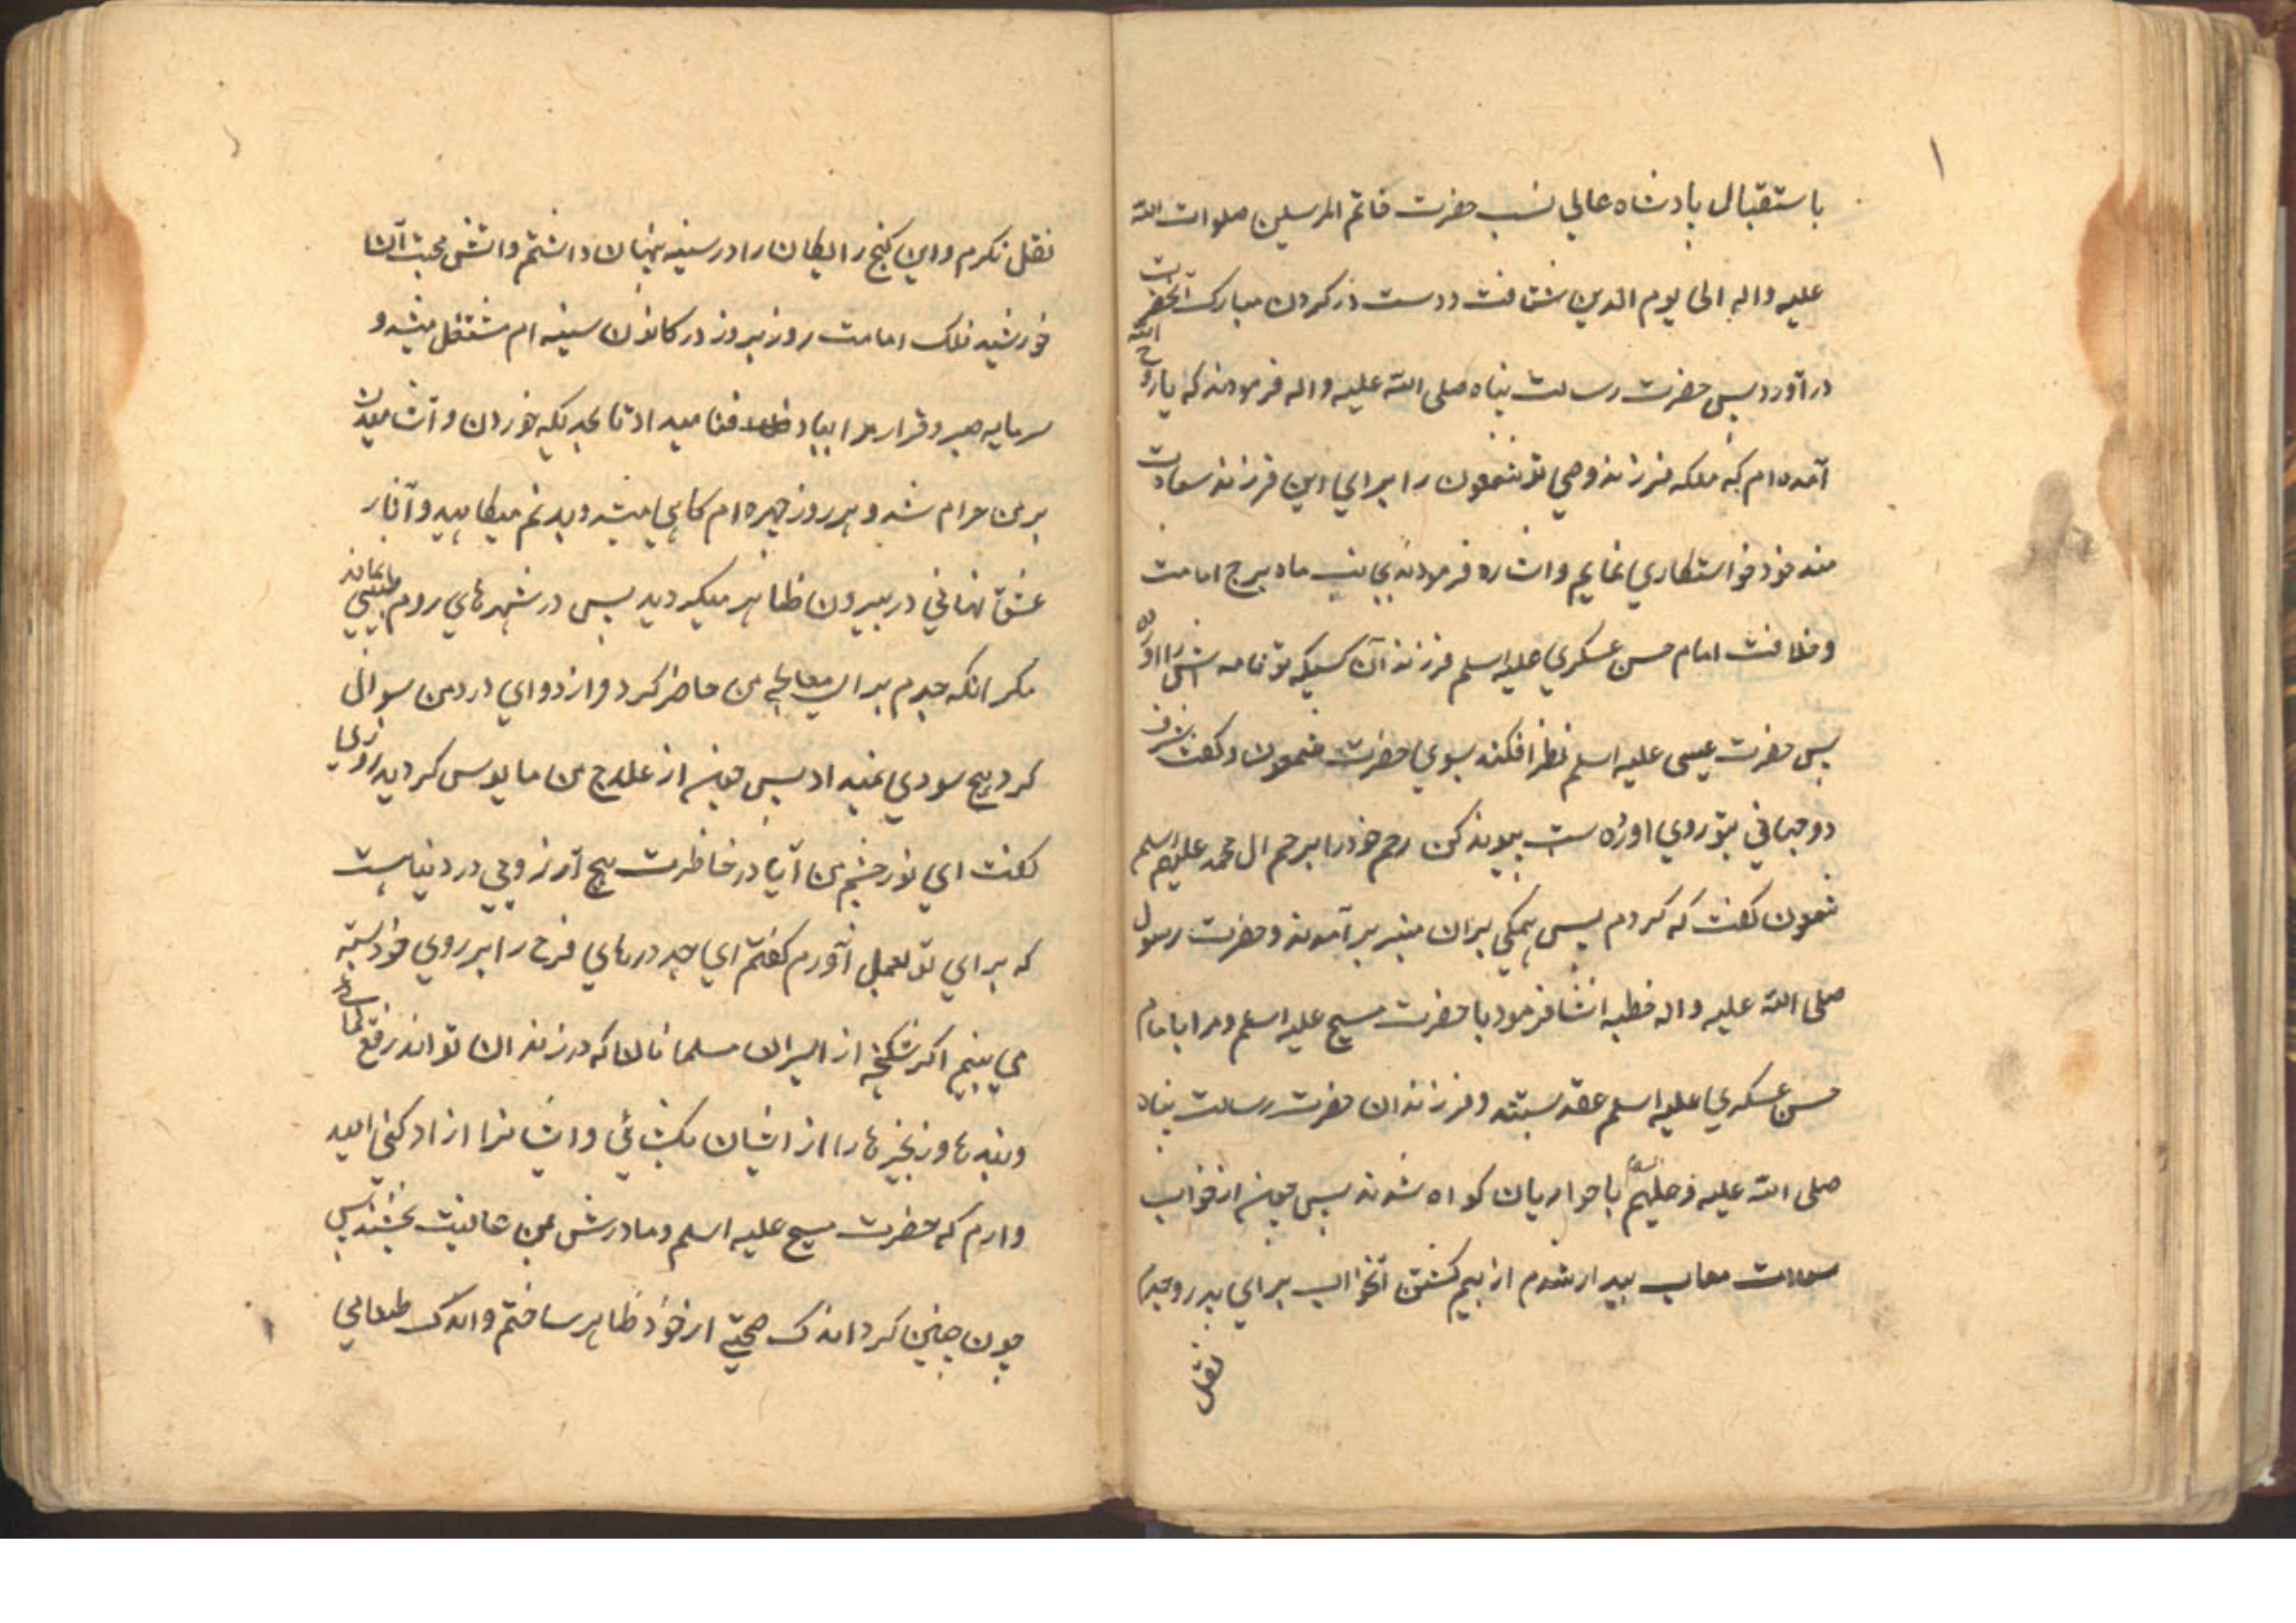 باستقبال پادشاه عالی نسب حضرت خاتم المرسلین صلوات الله
علیه واله الی یوم الدین شتافت ودست در کردن مبارک آنحضرت
درآورد پس حضرت رسالت پناه صلی الله علیه واله فرمودند که یا روح الله
آمده‌ام که ملکه فرزند وصی تو شمعون را برای این فرزند سعادت
مند خود خواستکاری نمایم واشاره فرمودند بجانب ماه برج امامت
وخلافت امام حسن عسکری علیه اسلم فرزند آن کسیکه تو نامه اش را
پس حضرت عیسی علیه اسلم نظر افکند بسوی حضرت شمعون وکفت شرف
دو جهانی بتو روی اورده ست پیوند کن رحم خود را برحم ال محمد علیهم اسلم
شمعون کفت که کردم پس همکی بران منبر برآمدند وحضرت رسول
صلی الله علیه واله خطبه انشا فرمود با حضرت مسیح علیه اسلم ومرا با امام
حسن عسکری علیه اسلم عقد بستند وفرزندان حضرت رسالت پناه
صلی الله علیه وعلیهم با حواریان کواه شدند پس چون از خواب
سعادت مآب بیدار شدم از بیم کشتن آنخواب برای پدر وجدم
نقل
نقل نکردم واین کنج رایکان را در سینه پنهان داشتم واتش محبت آن
خورشید فلک امامت روز بروز در کانون سینه ام مشتعل میشد و
سرمایه صبر وقرار مرا بباد فنا میداد تا بحدیکه خوردن وآشامیدن
بر من حرام شد وهر روز چهره ام کاهی میشد وبدنم میکاهید وآثار
عشق نهانی در بیرون ظاهر میکردید پس در شهرهای روم طبیبی نماند
مکر انکه جدم برای معالجه من حاضر کرد واز دوای درد من سوال
کرد هیچ سودی نمیداد پس چون از علاج من مایوس کردید روزی
کفت ای نور چشم من آیا در خاطرت هیچ آرزویی در دنیا هست
که برای تو بعمل آورم کفتم ای جد درهای فرح را بر روی خود بسته
می بینم اکر شکنجه از اسیران مسلمانان که در زندان تواند رفع نمایی
وبندها وزنجیرها را از ایشان بکشائی وایشانرا ازاد کنی امید
وارم که حضرت مسیح علیه اسلم ومادرش بمن عافیت بخشند پس
چون چنین کرد اندک صحتی از خود ظاهر ساختم واندک طعامی